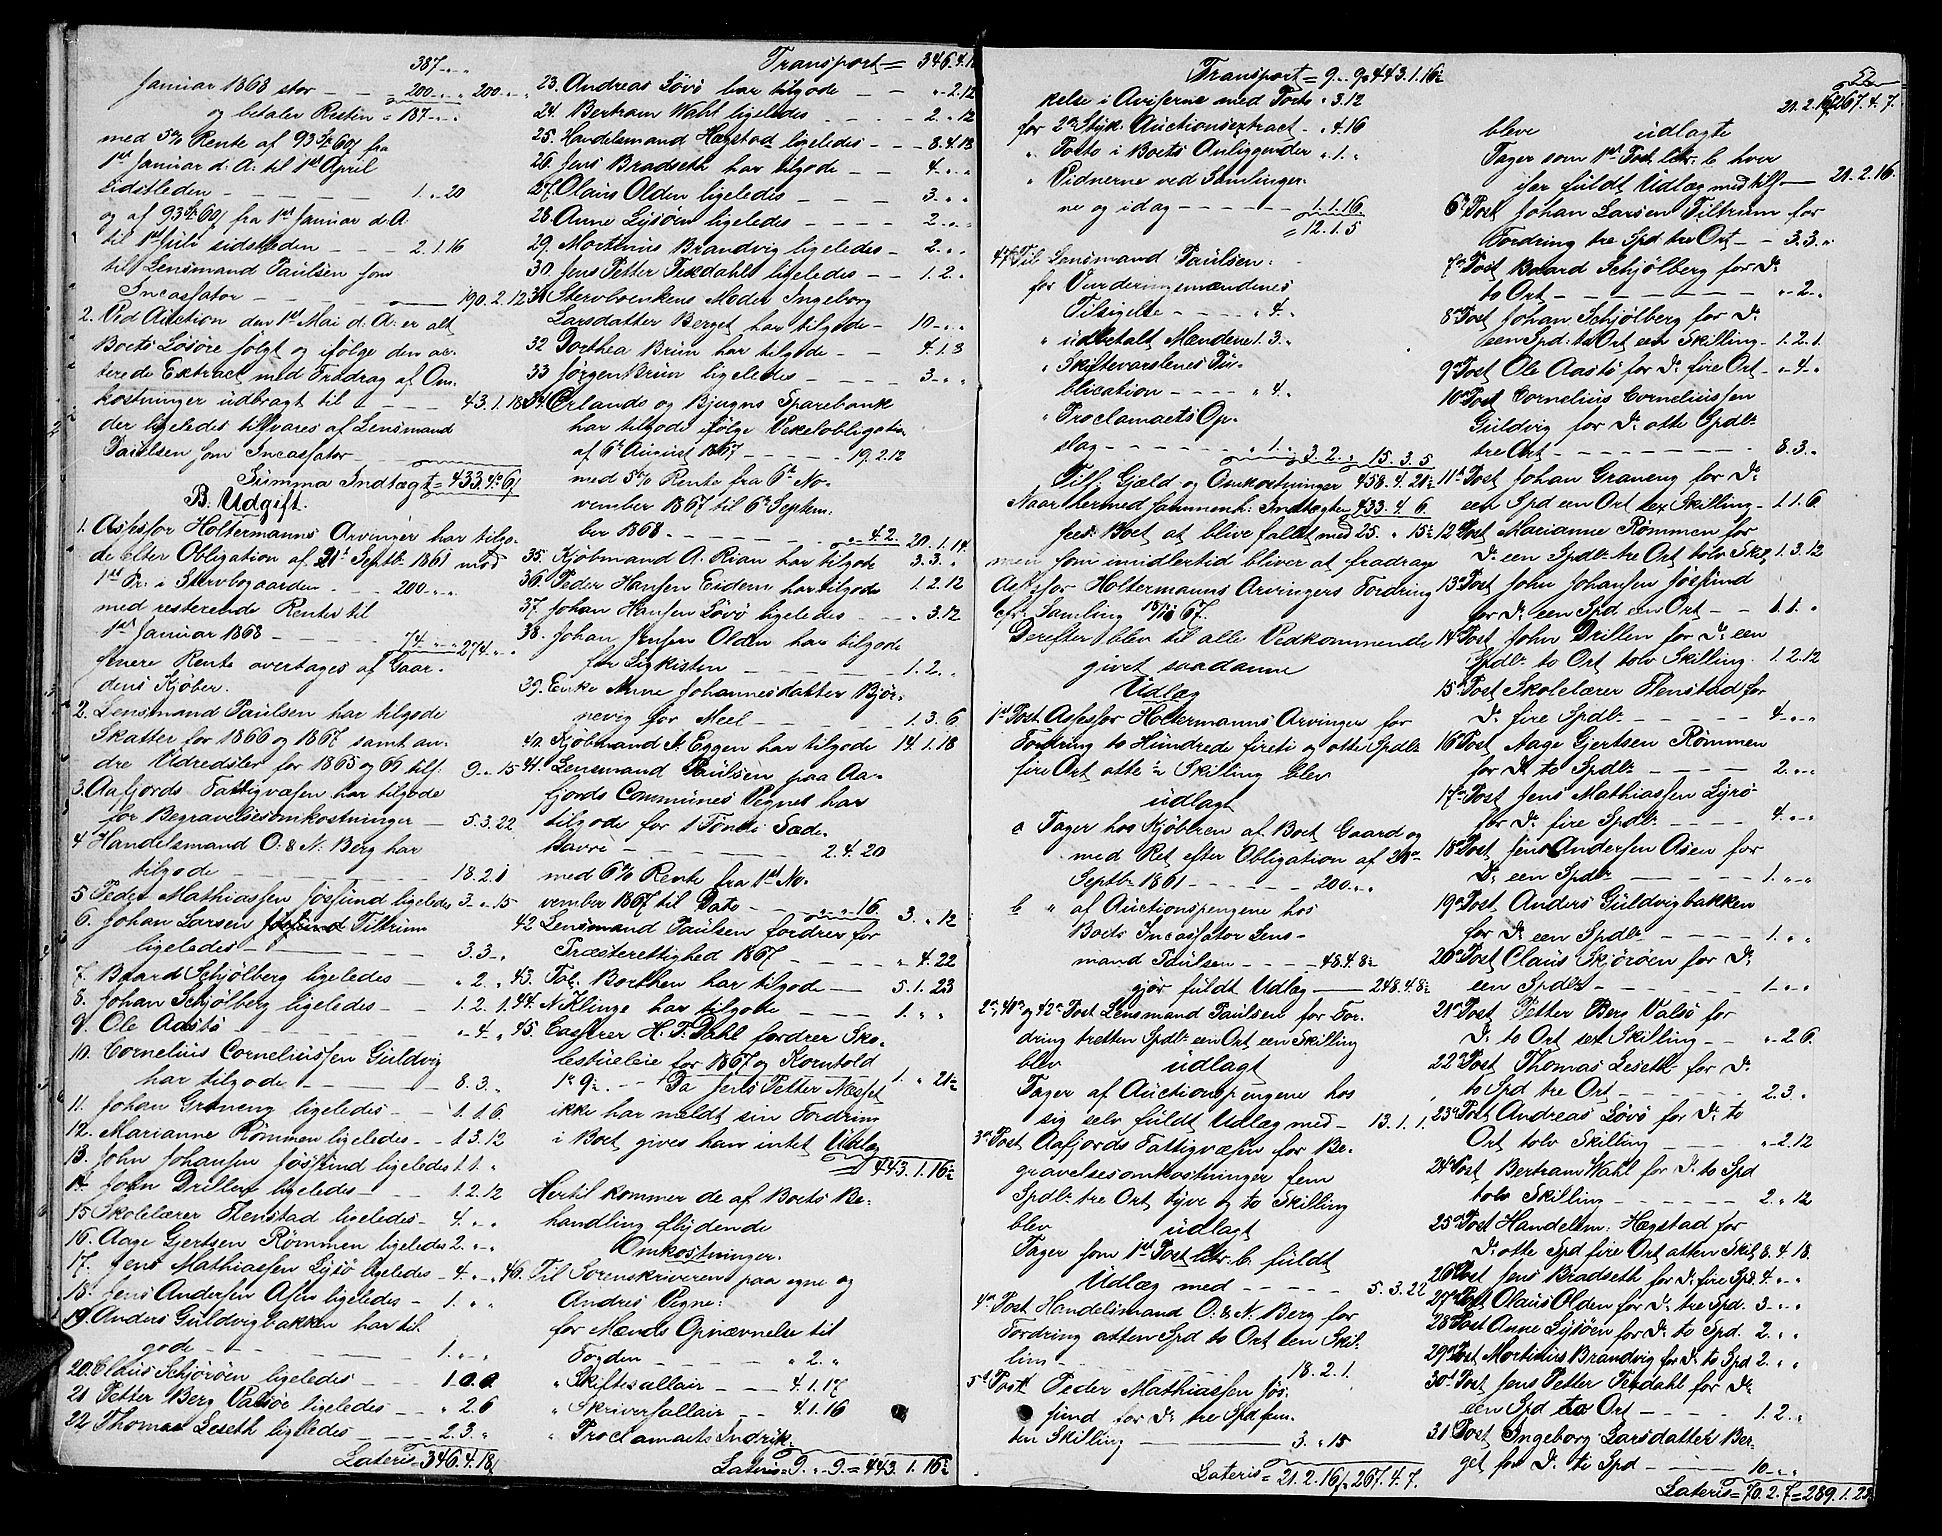 387 " "
Januar 1868 stor — — 200 " " 200 " "
og betaler Resten = 187 " "
med 5% Rente af 93 Sp 60 fra
1st Januar d. A. til 1st April
sidstleden — — — 1 " 20
og af 93 60 fra 1st Januar d. A.
til 1st Juli sidstleden — — 2.1.16
til Lensmand Paulsen som
Incassator — — — 190.2.12
2. Ved Auction den 1st Mai d. A. er alt
Boets Løsøre solgt og ifølge den ac-
terede Extract med Fradrag af Om-
kostninger udbragt til — — 43.1.18
der ligeledes tilvares af Lensmand
Paulsen som Incassator
Summa Indtægt = 433.4.6
B. Udgift.
1. Assessor Holtermanns Arvinger har tilgo-
de efter Obligation af 21st Septbr 1861 med
1st Pr. i Stervbogaarden — 200 " "
med resterende Renter til
1st Januar 1868 — — 74 " " 274 " "
senere Rente overtages af Gaar-
dens Kjøber.
2. Lensmand Paulsen har tilgode
Skatter for 1866 og 1867 samt an-
dre Udredsler for 1865 og 66 tils: 9 " 15
3. Aafjords Fattigvæsen har tilgode
for Begravelsesomkostninger — 5.3.22
4 Handelsmand O. & N. Berg har
tilgode — — — 18.2.1
5 Peder Mathiassen Jøssund ligeledes 3 " 15
6. Johan Larsen Tiltrum
ligeledes — — 3.3. "
7. Baard Schjølberg ligeledes — " 2 "
8. Johan Schjølberg ligeledes — 1.2.1
9. Ole Aastø — — " 4 "
10. Cornelius Corneliussen Guldvig
har tilgode — — 8.3. "
11. Johan Graneng ligeledes — 1.1.6
12. Marianne Rømmen ligeledes — 1.3.12
13. John Johansen Jøssund ligeledes 1.1. "
14. John Drillen ligeledes — 1.2.12
15 Skolelærer Henstad ligeledes — 4. " "
16. Aage Gjertsen Rømmen ligeledes 2. " "
17. Jens Mathiassen Lysø ligeledes — 4. " "
18. Jens Andersen Asen ligeledes — 1. " "
19. Anders Guldvigbakken har til-
gode — — 1. " "
20. Claus Schjørøen ligeledes — 1.0.0
21 Petter Berg Valsøe ligeledes — " 2.6
22 Thomas Leseth ligeledes — 2.3. "
Lateris = 346.4.18
Transport = 346.4.18
23. Andreas Løvø har tilgode — " 2.12
24. Bertram Wahl ligeledes — 2. " 12
25. Handelsmand Hægstad ligeledes — 8.4.18
26 Jens Bradseth har tilgode — 4. " "
27. Olaus Olden ligeledes — 3. " "
28. Anne Lysøen ligeledes — 2. " "
29. Mortinius Brandvig ligeledes — 2. " "
30. Jens Petter Texdahl ligeledes — 1.2. "
31 Stervboenkens Moder Ingeborg
Larsdatter Berget har tilgode — 10 " "
32 Dorthea Brun har tilgode — 4.1.3
33 Jørgen Brun ligeledes — 3 " "
34. Ørlands og Bjugns Sparebank
har tilgode ifølge Vexelobligation
af 6te August 1867 — 19.2.12
med 5% Rente fra 6te No-
vember 1867 til 6te Septem-
ber 1868 — — " 4.2. 20.1.14
35. Kjøbmand A. Rian har tilgode 3.3. "
36. Peder Hansen Eidem har tilgode 1.2.12
37. Johan Hansen Løvø ligeledes — " 3.12
38. Johan Jensen Olden har tilgode
for Ligkisten — — 1.2. "
39. Enke Anne Johannesdatter Bjør-
nevig for Meel — — 1.3.6
40. Kjøbmand N. Eggen har tilgode 14.1.18
41. Lensmand Paulsen paa Aa-
fjords Communes Vegne har
tilgode for 1 Tønde Sæde-
havre — — 2.4.20
med 6% Rente fra 1st No-
vember 1867 til Dato — " " 16. 3. " 12
42 Lensmand Paulsen fordrer for
Præsterettighed 1867 — " 4.22
43. Tob. Borthen har tilgode — 5.1.23
44. N. Klinge har tilgode — 1. " "
45. Casserer H. P. Dahl fordrer Sko-
lestueleie for 1867 og Korntold
1. 9 — 1. " 21
Da Jens Petter Næsset
ikke har meldt sin Fordring
i Boet gives ham intet Udlæg
= 443.1.16
Hertil kommer de af Boets Be-
handling flydende
Omkostninger.
46. Til Sorenskriveren paa egne og
Andres Vegne:
for Mænds Opnævnelse til
Jorden — — " 2. "
" Skiftesallair — 4.1.17
" Skriversallair — 4.1.16
" Proclamaets Indryk-
Lateris = 9. " 9. = 443.1.16
Transport = 9. " 9. 443.1.16
kelse i Aviserne med Porto " 3.12
for 2de Styk. Auctionsextract — " 4.16
" Porto i Boets Anliggender " 1. "
" Vidnerne ved Samlinger-
ne og idag — — 1.1.16
= 12.1.5
47. Til Lensmand Paulsen:
for Vurderingsmændenes
Tilsigelse — — " 4. "
" udbetalt Mændene 1.3. "
" Skiftevarslenes Pu-
blication — — " 4. "
" Proclamaets Op-
slag — — " 1. " 3.2. " 15.3.5
Tils: Gjæld og Omkostninger 458.4.21
Naar hermed sammenh: Indtægten 433.4.6
sees Boet at blive fallit med 25. " 15
men som imidlertid bliver at fradrage
Assessor Holtermanns Arvingers Fordring
cfr. Samling 67.
Derefter blev til alle Vedkommende
givet saadanne
Udlæg
1st Post. Assessor Holtermanns Arvinger for
Fordring to Hundrede fireti og otte Spdlr
fire Ort otte ½ Skilling blev
udlagt
a Tager hos Kjøberen af Boets Gaard og
med Ret efter Obligation af 21de
Septbr 1861 — — 200. " "
b " af Auctionspengene hos
Boets Incassator Lens-
mand Paulsen — — 48.4.8½
gjør fuldt Udlæg — 248.4.8½
2de, 41de og 42de Post Lensmand Paulsen for For-
dring tretten Spdlr een Ort een Skilling
blev udlagt
Tager af Auctionspengene hos
sig selv fuldt Udlæg med — 13.1.1.
3de Post Aafjords Fattigvæsen for Be-
gravelsesomkostninger fem
Spdlr tre Ort tyve og to Skilling
blev udlagt
Tager som 1st Post litr. b. fuldt
Udlæg med — — 5.3.22
4de Post Handelsmand O. & N. Berg for
Fordring atten Spd to Ort een Skil-
ling — — 18.2.1.
5te Post Peder Mathiassen Jøs-
sund for Do tre Spd fem-
ten Skilling — 3. " 15
Lateris = 21.2.16 267.4.7.
52
21.2.16 267.4.7.
bleve udlagte
Tager som 1st Post litr. b hver
især fuldt Udlæg med tils. — 21.2.16.
6te Post Johan Larsen Tiltrum for
Fordring tre Spd tre Ort — 3.3. "
7de Post Baard Schjølberg for Do
to Ort — — " 2 "
8de Post Johan Schjølberg for Do
een Spd. to Ort een Skilling — 1.2.1.
9de Post Ole Aastø for Do fire Ort — " 4 "
10de Post Cornelius Corneliussen
Guldvig for Do otte Spdlr
tre Ort — — 8.3. "
11te Post Johan Graneng for Do
een Spd een Ort sex Skilling — 1.1.6.
12te Post Marianne Rømmen for
Do een Spdlr tre Ort tolv Skil. 1.3.12
13de Post John Johansen Jøssund
for Do een Spd een Ort — 1.1. "
14de Post John Drillen for Do een
Spdlr to Ort tolv Skilling. 1.2.12
15de Post Skolelærer Henstad for
Do fire Spdlr — — 4 " "
16de Post Aage Gjertsen Rømmen
for Do to Spdlr — — 2. " "
17de Post Jens Mathiassen Lysø
for Do fire Spdlr — 4. " "
18de Post Jens Andersen Asen for
Do een Spdlr — — 1. " "
19de Post Anders Guldvigbakken
for Do een Spdlr — 1. " "
20de Post Claus Skjørøen for Do
een Spdlr — — 1. " "
21de Post Petter Berg Valsø for
Do to Ort sex Skilling — " 2 6.
22de Post Thomas Leseth for Do
to Spd tre Ort — — 2.3. "
23de Post Andreas Løvø for Do to
Ort tolv Skilling — " 2.12
24de Post Bertram Wahl for Do to Spd
tolv Skilling — — 2. " 12
25de Post Handelsm: Hægstad for
Do otte Spd fire Ort atten Skil. 8.4.18.
26de Post Jens Bradseth for Do fire Spd. 4. " "
27de Post Olaus Olden for Do tre Spd. 3 " "
28de Post Anne Lysøen for Do to Spd. 2. " "
29de Post Mortinius Brandvig for Do to Spd 2. " "
30te Post Jens Petter Texdahl for Do
een Spd to Ort — — 1.2. "
31 Post Ingeborg Larsdatter Ber-
get for Do ti Spd — 10 " "
Lateris = 70.2.7 = 289.1.23